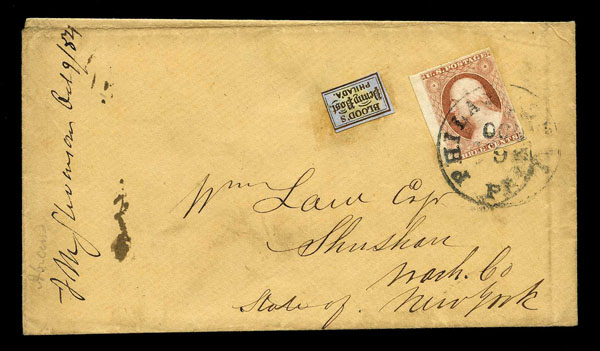 BLOOD'S
Penny Post
PHILADA.
U.S. POSTAGE
THREE CENTS
PHILA
OC
9
PE
Wm Law Esqr
Shushan
Wash. Co
State of New York
Oct 9/54